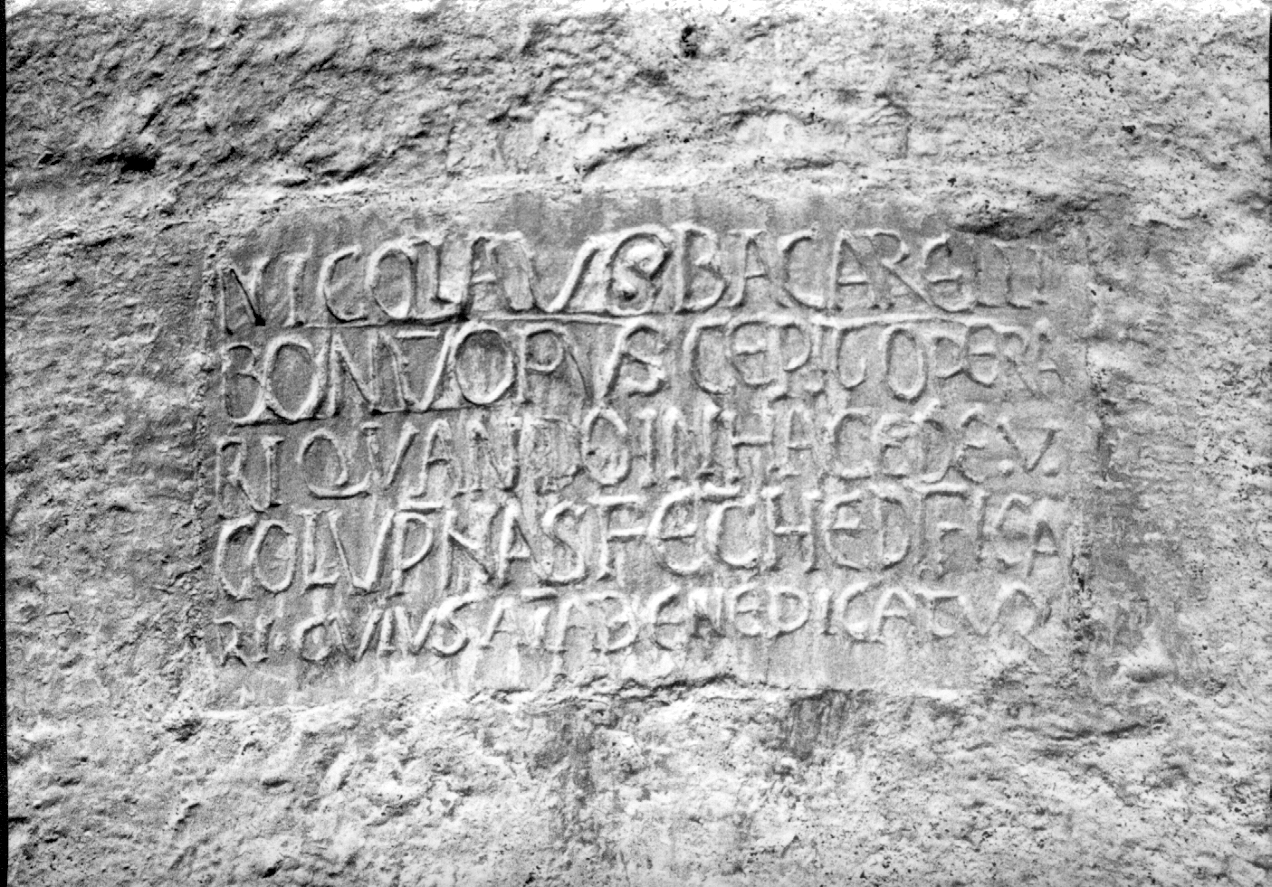 NICOLAVS BACARELLI
BONIZO PIVS CEPIT OPERA
RI QVANDO IN HAC EDE . V .
COLVPNAS FECH EDIFICA
RI QVI VISAT A BENEDICATVR